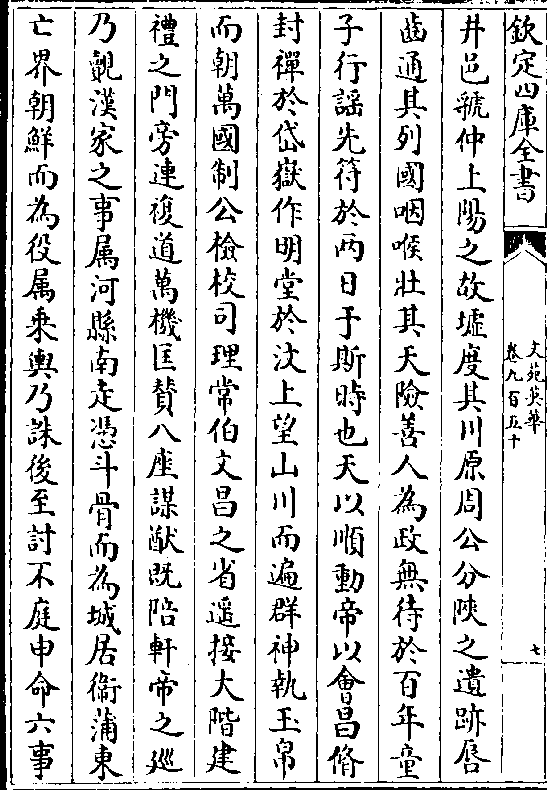 欽定四庫全書
文苑英華
卷九百五十
七
井邑虢仲上陽之故墟度其川原周公分陜之遺跡唇
齒通其列國咽喉壯其天險善人為政無待於百年童
子行謡先符於兩日于斯時也天以順動帝以會昌脩
封禪於岱嶽作明堂於汶上望山川而遍群神執玉帛
而朝萬國制公檢校司理常伯文昌之省遥接大階建
禮之門旁連複道萬機匡賛八座謀猷既陪軒帝之廵
乃覩漢家之事属河縣南走憑斗骨而為城居衞蒲東
亡界朝鮮而為役属乘輿乃誅後至討不庭申命六事